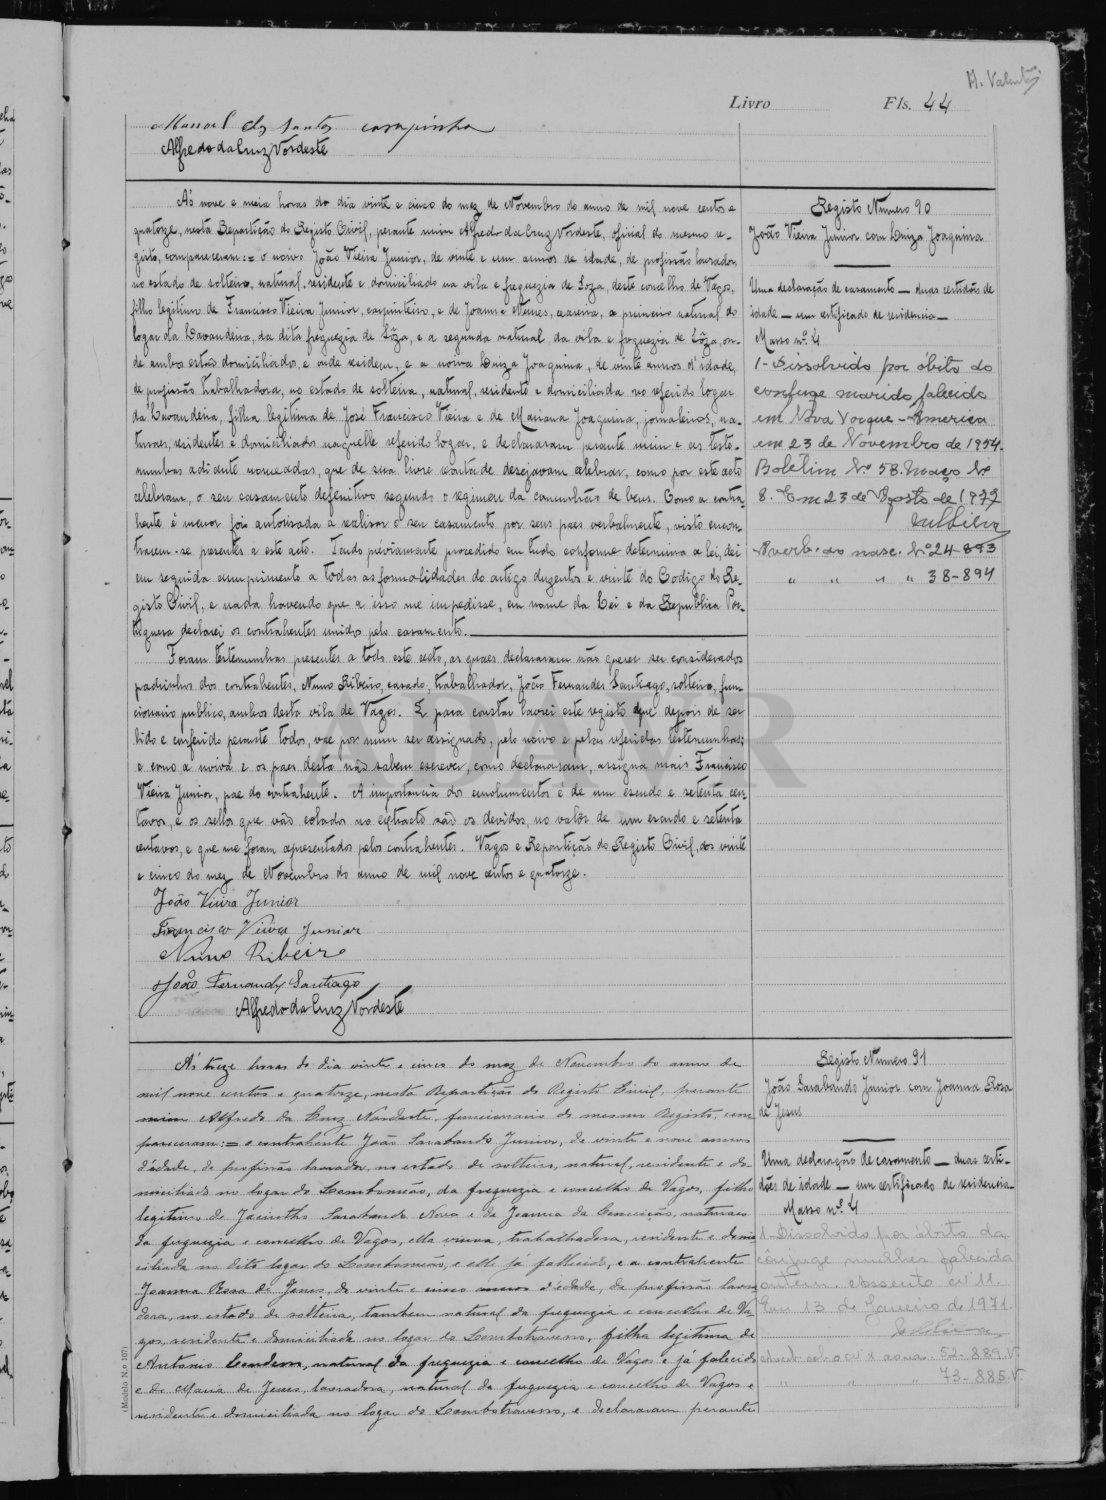 H. Valente
Livro Fls. 44
Manoel dos Santos Carapinha
Alfredo da Cruz Nordeste
Ás nove e meia horas do dia vinte e cinco do mez de Novembro do anno de mil nove centos e
quatorze, nesta Repartição do Registo Civil, perante mim Alfredo da Cruz Nordeste, oficial do mesmo re-
gisto, compareceram:= o noivo João Vieira Junior, de vinte e um annos de idade, de profissão lavrador,
no estado de solteiro, natural, residente e domiciliado na vila e freguezia de Soza, deste concelho de Vagos,
filho legitimo de Francisco Vieira Junior, carpinteiro, e de Joanna Nunes, caseira, o primeiro natural do
logar da Lavandeira, da dita freguezia de Sôza, e a segunda natural da vila e freguezia de Sôza, on-
de ambos estão domiciliados, e onde residem, e a noiva Luiza Joaquina, de vinte annos d'idade,
de profissão trabalhadora, no estado de solteira, natural, residente e domiciliada no referido logar
da Lavandeira, filha legitima de José Francisco Vieira e de Mariana Joaquina, jornaleiros, na-
turaes, residentes e domiciliados naquelle referido logar, e declararam perante mim e as teste-
munhas adiante nomeadas, que de sua livre vontade desejavam celebrar, como por este acto
celebram, o seu casamento definitivo segundo o regimen da comunhão de bens. Como a contra-
hente é menor foi autorisada a realisar o seu casamento por seus paes verbalmente, visto encon-
trarem-se presentes a este acto. Tendo préviamente procedido em tudo conforme determina a lei, dei
em seguida cumprimento a todas as formalidades do artigo duzentos e vinte do Codigo do Re-
gisto Civil, e nada havendo que a isso me impedisse, em nome da Lei e da Republica Por-
tugueza declarei os contrahentes unidos pelo casamento.
Foram testemunhas presentes a todo este acto, as quaes declararam não querer ser considerados
padrinhos dos contrahentes, Nuno Ribeiro, casado, trabalhador, João Fernandes Santiago, solteiro, fun-
cionario publico, ambos desta vila de Vagos. E para constar lavrei este registo que depois de ser
lido e conferido perante todos, vae por mim ser assignado, pelo noivo e pelas referidas testemunhas;
e como a noiva e os paes desta não sabem escrever, como declararam, assigna mais Francisco
Vieira Junior, pae do contrahente. A importancia dos emolumentos é de um escudo e setenta cen-
tavos, e os sellos que vão colados no extracto são os devidos, no valor de um escudo e setenta
centavos, e que me foram apresentados pelos contrahentes. Vagos e Repartição do Registo Civil, aos vinte
e cinco do mez de Novembro do anno de mil nove centos e quatorze.
João Vieira Junior
Francisco Vieira Junior
Nuno Ribeiro
João Fernandes Santiago
Alfredo da Cruz Nordeste
Registo Numero 90
João Vieira Junior com Luiza Joaquina
Uma declaração de casamento — duas certidões de
idade — um certificado de residencia —
Masso nº. 4
1- Dissolvido por óbito do
conjuge marido falecido
em Nova Yorque - America
em 23 de Novembro de 1954.
Boletim Nº 58. Maço Nº
8. Em 23 de Agosto de 1977
Averb. ao nasc. Nº 24-893
" " " " 38-894
Ás treze horas do dia vinte e cinco do mez de Novembro do anno de
mil nove centos e quatorze, nesta Repartição do Registo Civil, perante
mim Alfredo da Cruz Nordeste, funcionario do mesmo Registo, com-
pareceram:= o contrahente João Sarabando Junior, de vinte e nove annos
d'idade, de profissão lavrador, no estado de solteiro, natural, residente e do-
miciliado no logar do Lombomeão, da freguezia e concelho de Vagos, filho
legitimo de Jacintho Sarabando Novo e de Joanna da Conceição, naturaes
da freguezia e concelho de Vagos, ella viuva, trabalhadora, residente e domi-
ciliada no dito logar do Lombomeão, e elle já fallecido, e a contrahente
Joanna Rosa de Jesus, de vinte e cinco annos d'idade, de profissão lavra-
dora, no estado de solteira, tambem natural da freguezia e concelho de Va-
gos, residente e domiciliada no logar do Lombotravesso, filha legitima de
Antonio Condesso, natural da freguezia e concelho de Vagos e já falecido
e de Maria de Jesus, lavradora, natural da freguezia e concelho de Vagos e
residente e domiciliada no logar do Lombotravesso, e declararam perante
Registo Numero 91
João Sarabando Junior com Joanna Rosa
de Jesus
Uma declaração de casamento — duas certi-
dões de idade — um certificado de residencia —
Masso nº. 4
1- Dissolvido por óbito da
cônjuge mulher falecida
ontem. Assento nº 11.
Em 13 de Janeiro de 1971.
52-889.V.
" " " 73-885.V.
(Modelo N.º 107)